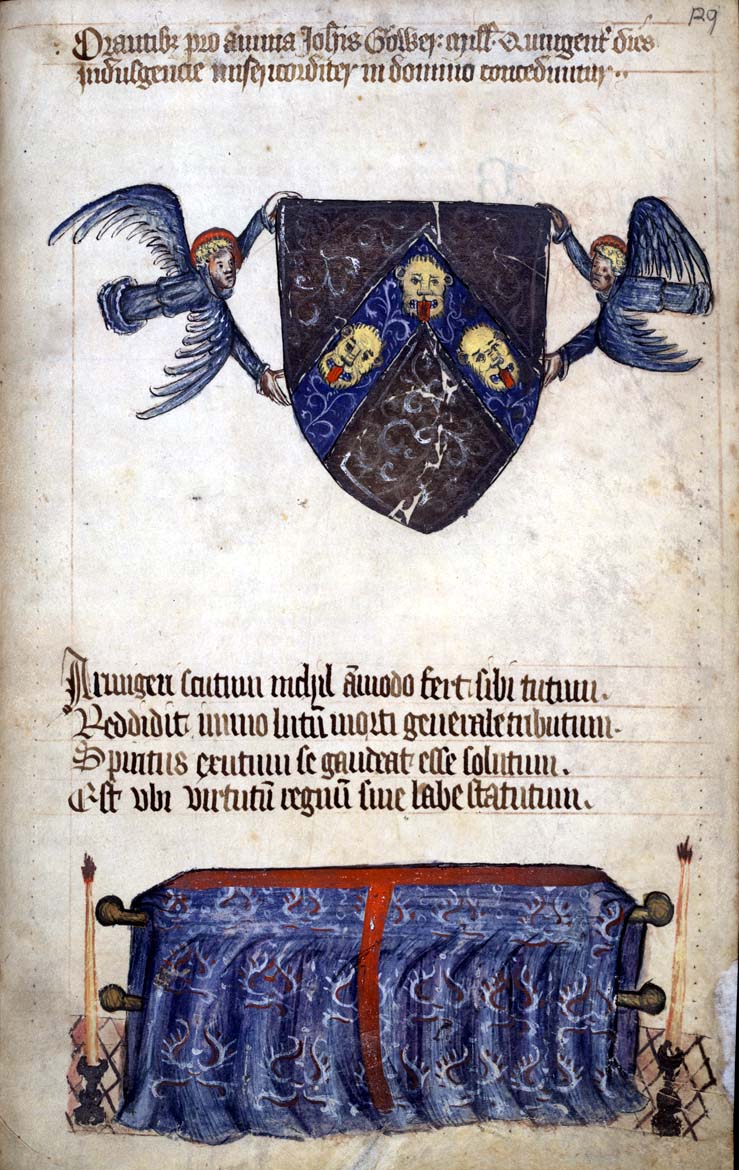 129
Orantibꝫ pro anima Joħis Gower: mill̃ Quingent̃ dies
Indulgencie misericorditer in domino conceduntur..
Armigeri scutum nichil āmodo fert sibi tutum.
Reddidit immo lutū morti generale tributum.
Spiritus exutum se gaudeat esse solutum.
Est vbi virtutū regnū sine labe statutum.